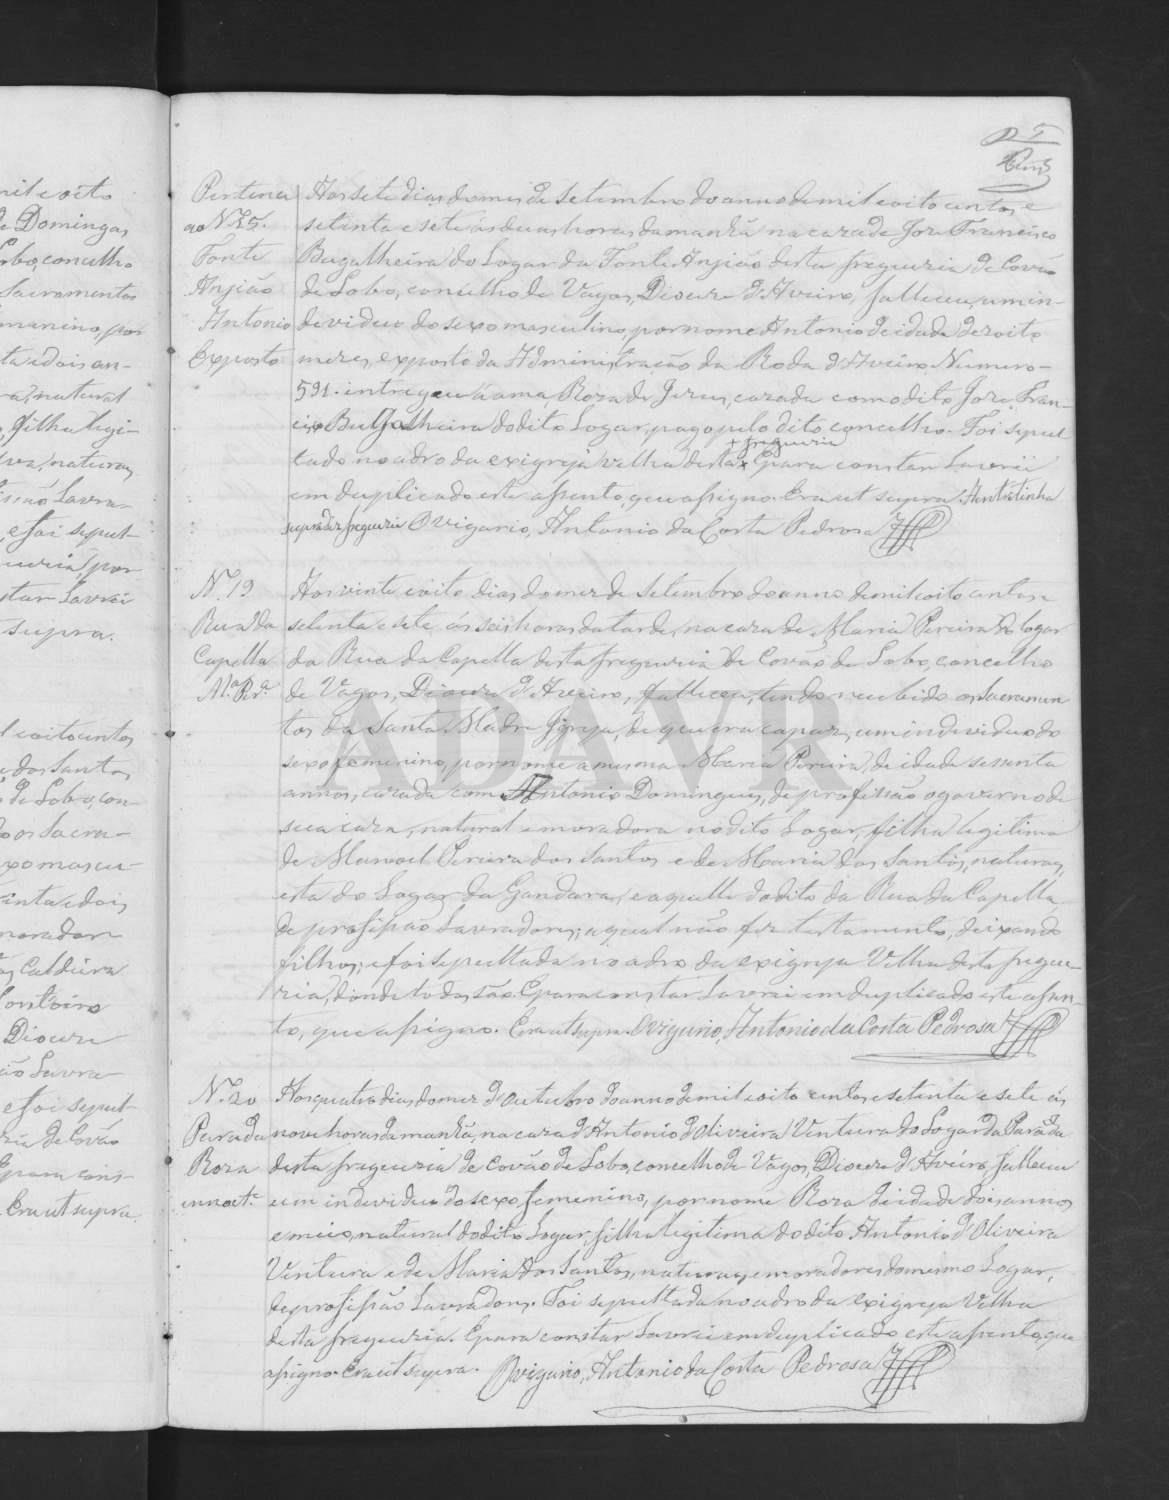 Pertence
ao N.15.
Fonte
Anjião
Antonio
Exposto
Aos sete dias do mes de Setembro do anno de mil oito centos e
setenta e sete ás duas horas da manhã na caza de Joze Francisco
Bugalheira do Logar da Fonte Anjião desta freguezia de Covão
de Lobo, concelho de Vagos, Diocese d'Aveiro, falleceu um in-
dividuo do sexo masculino, por nome Antonio de idade de oito
mezes, exposto da Administração da Roda d'Aveiro Numero-
591. entregue á ama Roza de Jezus, cazada com o dito Joze Fran-
cisco Bugalheira do dito Logar, pago pelo dito concelho. Foi sepul
+ freguezia
tado no adro da exigreja velha desta + E para constar Lavrei
em duplicado este assento, que assigno. Era ut supra. A entrelinha
supra diz freguezia O Vigario, Antonio da Costa Pedrosa
N.º 19.
Rua da
Capella
M.ª Per.ª
Aos vinte e oito dias do mez de Setembro do anno de mil oito centos e
setenta e sete ás seis horas da tarde, na caza de Maria Pereira do logar
da Rua da Capella desta freguezia de Covão de Lobo, concelho
de Vagos, Diocese d'Aveiro, falleceu, tendo recebido os Sacramen
tos da Santa Madre Igreja, de que era capaz, um individuo do
sexo femenino, por nome a mesma Maria Pereira, de idade sessenta
annos, cazada com Antonio Domingues, de profissão o governo de
sua caza, natural e moradora no dito Logar, filha legitima
de Manoel Pereira dos Santos e de Maria dos Santos, naturaes,
esta do Logar da Gandara, e aquelle do dito da Rua da Capella
de profissão Lavradores; a qual não fez testamento, deixando
filhos; e foi sepultada no adro da exigreja Velha desta fregue-
zia, donde todos são. E para constar Lavrei em duplicado este assen-
to, que assigno. Era ut supra. O Vigario, Antonio da Costa Pedrosa
N.º 20
Parada
Roza
innoct.e
Aos quatro dias do mez d'Outubro do anno de mil oito centos e setenta e sete ás
nove horas da manhã, na caza d'Antonio d'Oliveira Ventura do Logar da Parada
desta freguezia de Covão de Lobo, concelho de Vagos, Diocese d'Aveiro falleceu
um individuo do sexo femenino, por nome Roza de idade dois annos
e meio, natural do dito Logar, filha legitima do dito Antonio d'Oliveira
Ventura e de Maria dos Santos, naturaes, e moradores do mesmo Logar,
de profissão Lavradores. Foi sepultada no adro da exigreja Velha
desta freguezia. E para constar Lavrei em duplicado este assento, que
assigno. Era ut supra. O Vigario, Antonio da Costa Pedrosa
ADAVR
mil e oito
de Domingas
Lobo, concelho
Sacramentos
menino, por
a, natural
, filha legi-
, naturaes
Lavra-
, e foi sepul-
guezia, por
star Lavrei
supra.
l oito centos
e dos Santos
de Lobo, con-
do os Sacra-
exo mascu-
enta e dois
morador
Caldeira
Diocese
ão Lavra-
e foi sepul-
zia de Covão
E para cons-
Era ut supra.